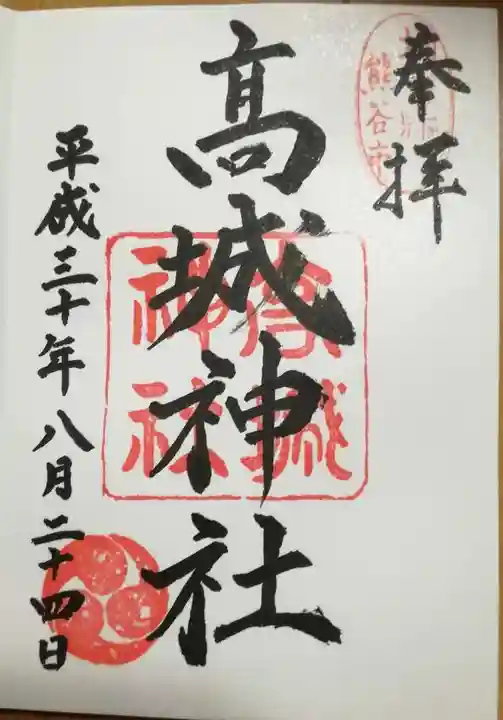 奉拝
熊谷市
高城神社
高城
神社
平成三十年八月二十四日